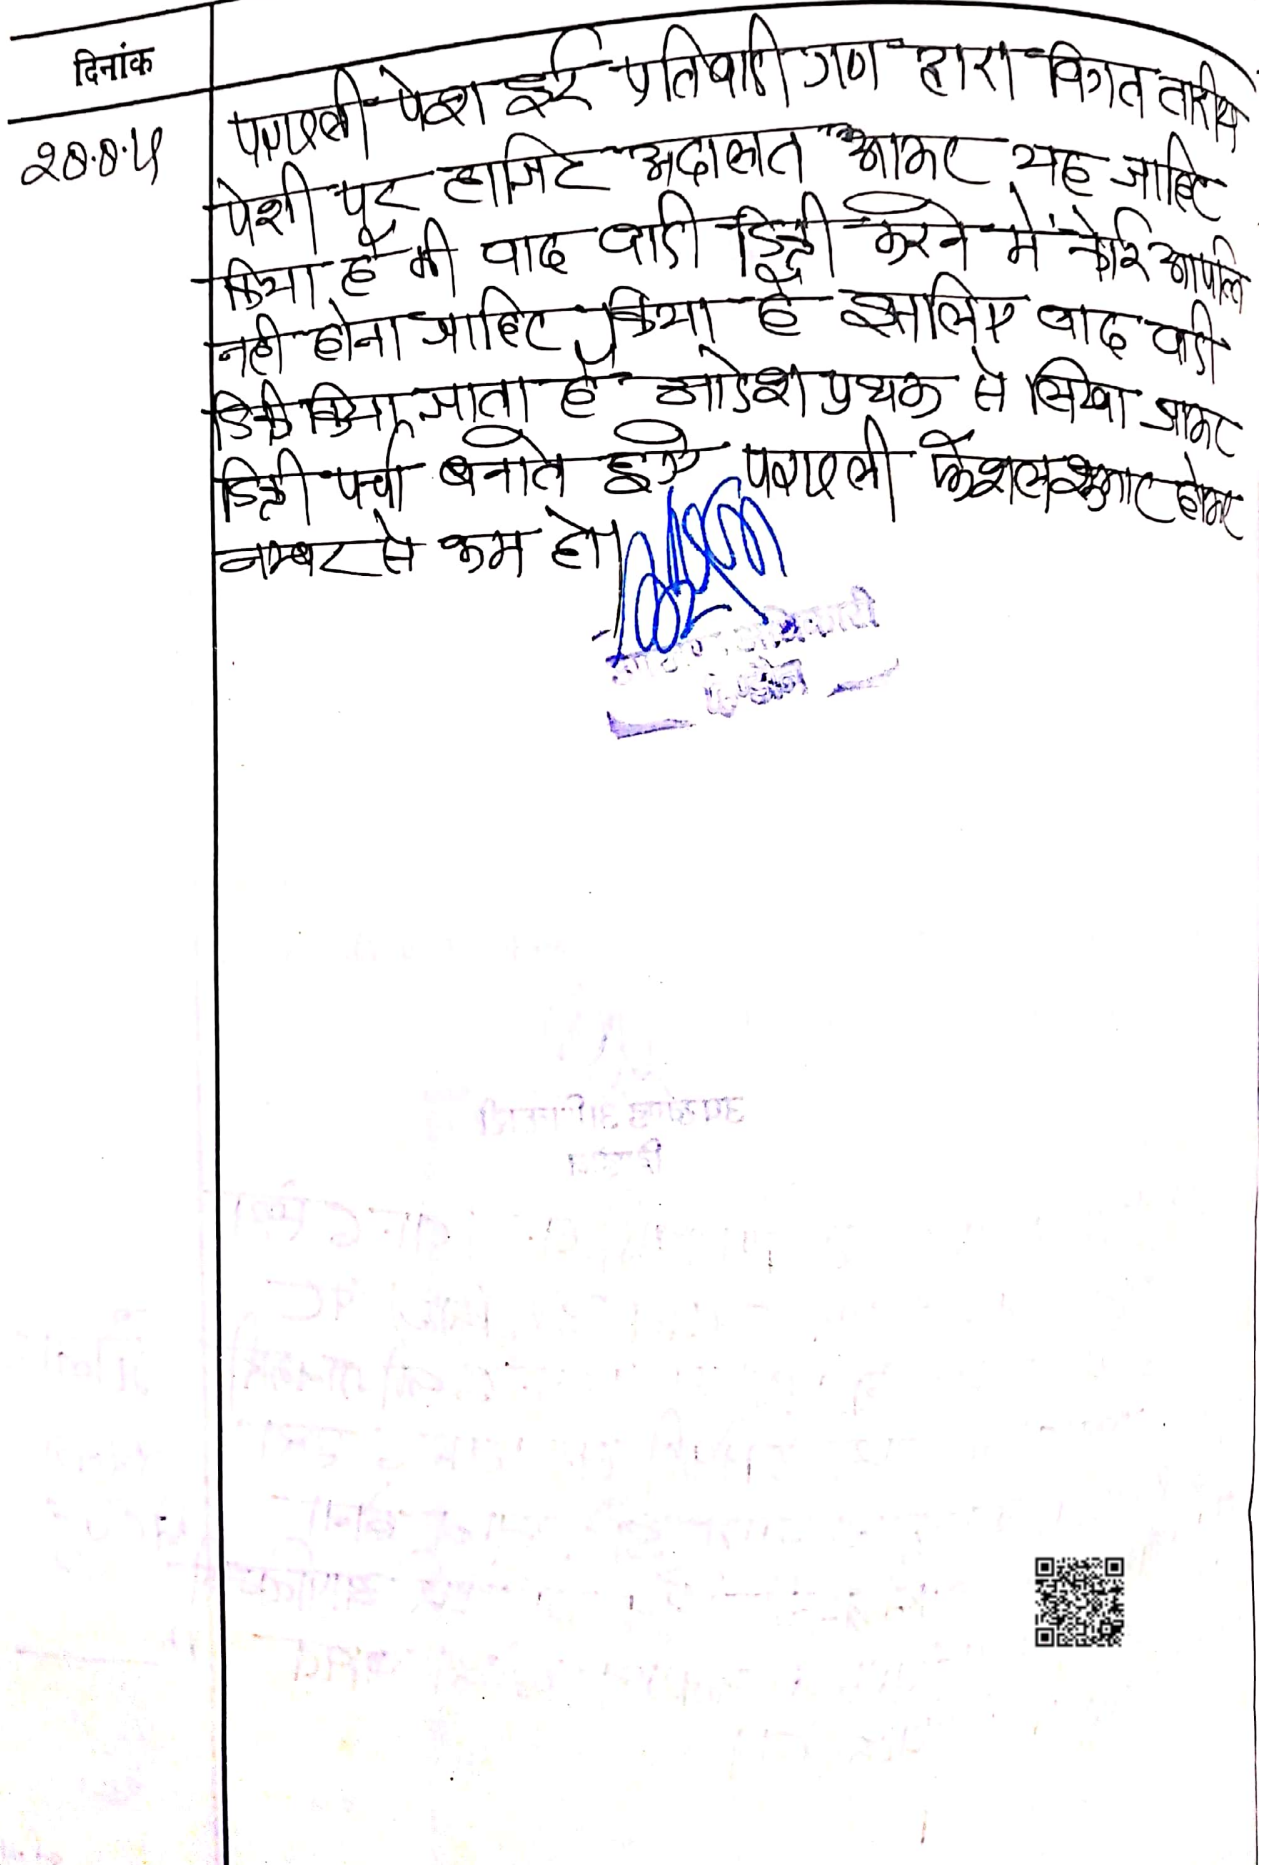 दिनांक
पत्रावली पेश हुई प्रतिवादी गण द्वारा विगत तारीख
28.8.
पेशी पर हाजिर अदालत आकर यह जाहिर
किया है की वाद वादी डिक्री करने में कोई आपत्ति
नही होना जाहिर किया है इसलिए वाद वादी
डिक्री किया जाता है आदेश प्रथक से लिखा जाकर
डिक्री पर्चा बनाते हुऐ पत्रावली फैशलशुमार होकर
नम्बर से कम हो।